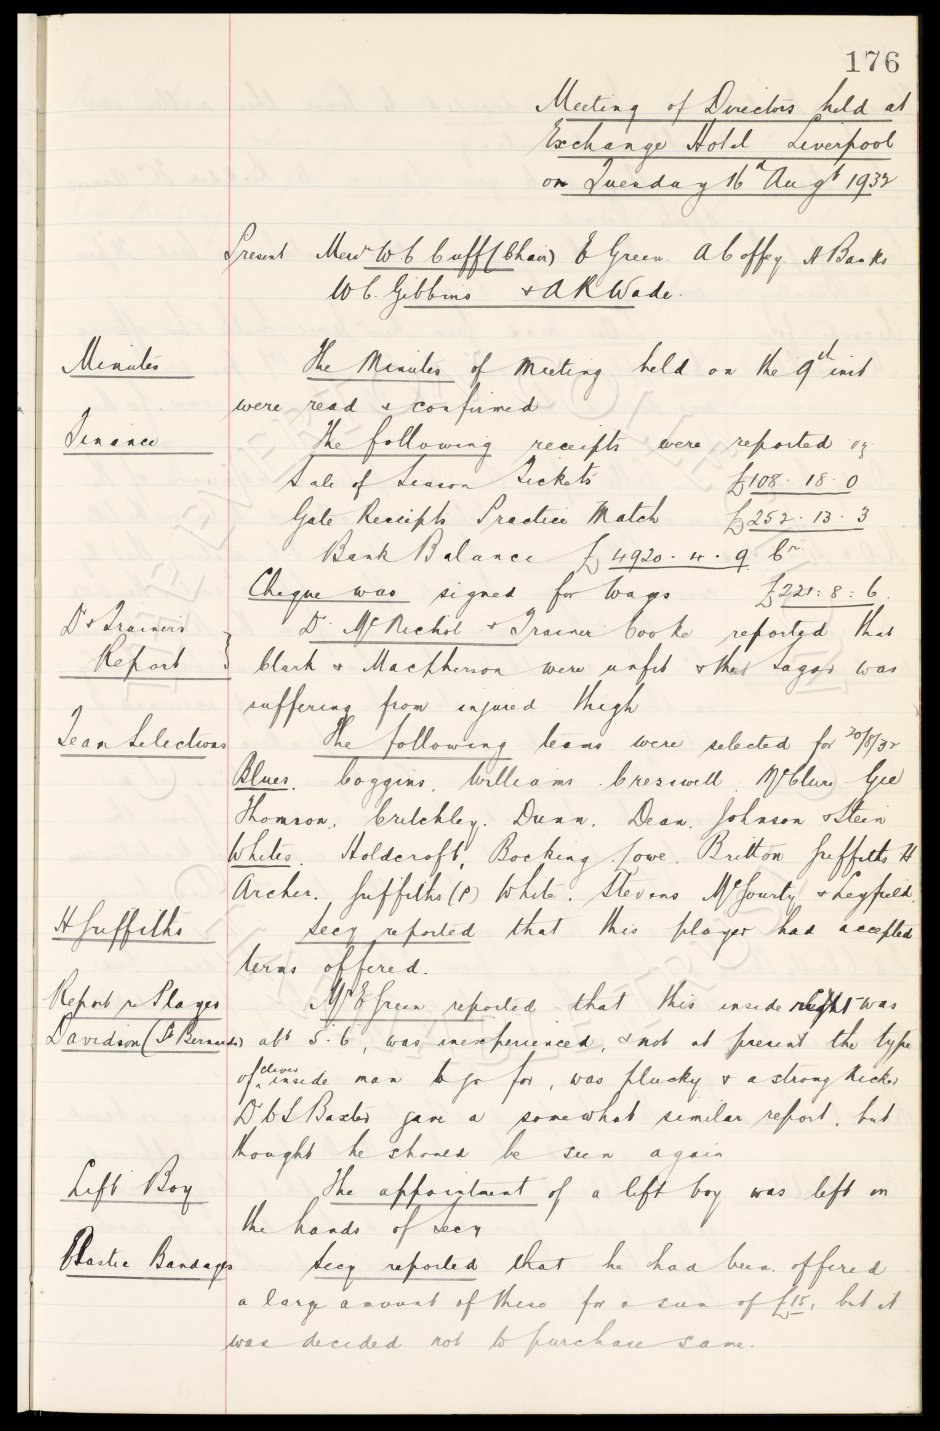 176
Meeting of Directors held at
Exchange Hotel Liverpool
on Tuesday 16th Augt 1932
Present Messrs W C Cuff (Chair) E Green. A Coffey. H Banks
W C. Gibbins & A R Wade.
Minutes The Minutes of Meeting held on the 9th inst
were read & confirmed
Finance The following receipts were reported viz
Sale of Season Tickets £108. 18. 0
Gate Receipts Practice Match £252. 13. 3
Bank Balance £4920. 4. 9 Cr.
Cheque was signed for Wages £221: 8: 6.
Dr & Trainers Dr McNichol & Trainer Cooke reported that
Report Clark & Macpherson were unfit & that Sagar was
suffering from injured thigh
Team Selections The following teams were selected for 20/8/32
Blues. Coggins. Williams. Cresswell. McClure Gee
Thomson. Critchley. Dunn. Dean. Johnson & Stein
Whites. Holdcroft, Bocking. Lowe. Britton Griffiths H
Archer. Griffiths (P) White. Stevens McGourty & Leyfield.
H Griffiths Secy reported that this player had accepted
terms offered.
Report re Player Mr E Green reported that this inside right was
Davidson (St Bernards) abt 5. 6, was inexperienced, & not at present the type
of clever inside man to go for, was plucky & a strong kicker
Dr C S Baxter gave a somewhat similar report, but
thought he should be seen again
Lift Boy The appointment of a lift boy was left in
the hands of Secy
Elastic Bandages Secy reported that he had been offered
a large amount of these for a sum of £15, but it
was decided not to purchase same.